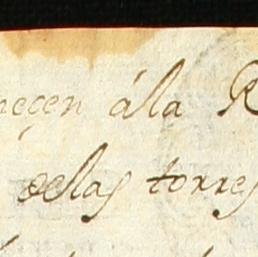 neçen á la R
de las torres